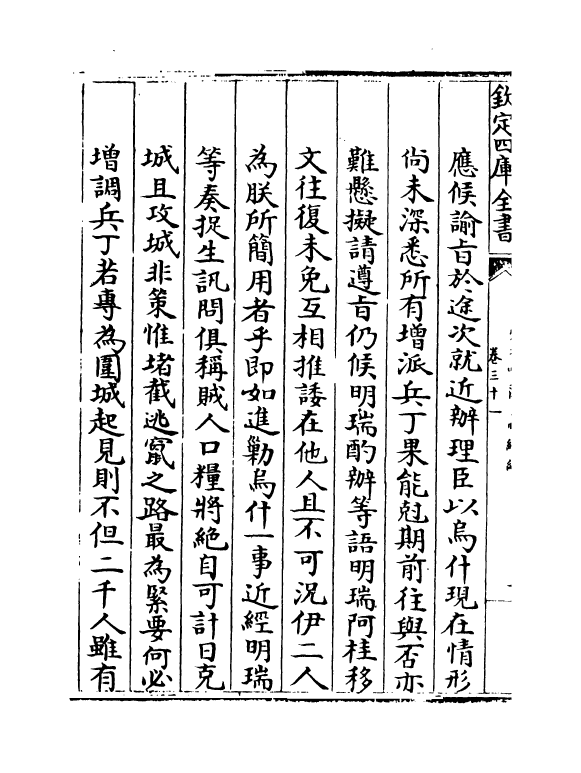 欽定四庫全書
卷三十一
應候諭旨於途次就近辦理臣以烏什現在情形
尚未深悉所有增派兵丁果能尅期前往與否亦
難懸擬請遵旨仍候明瑞酌辦等語明瑞阿桂移
文往復未免互相推諉在他人且不可況伊二人
為朕所簡用者乎即如進勦烏什一事近經明瑞
等奏捉生訊問俱稱賊人口糧將絶自可計日克
城且攻城非策惟堵截逃竄之路最為緊要何必
增調兵丁若專為圍城起見則不但二千人雖有